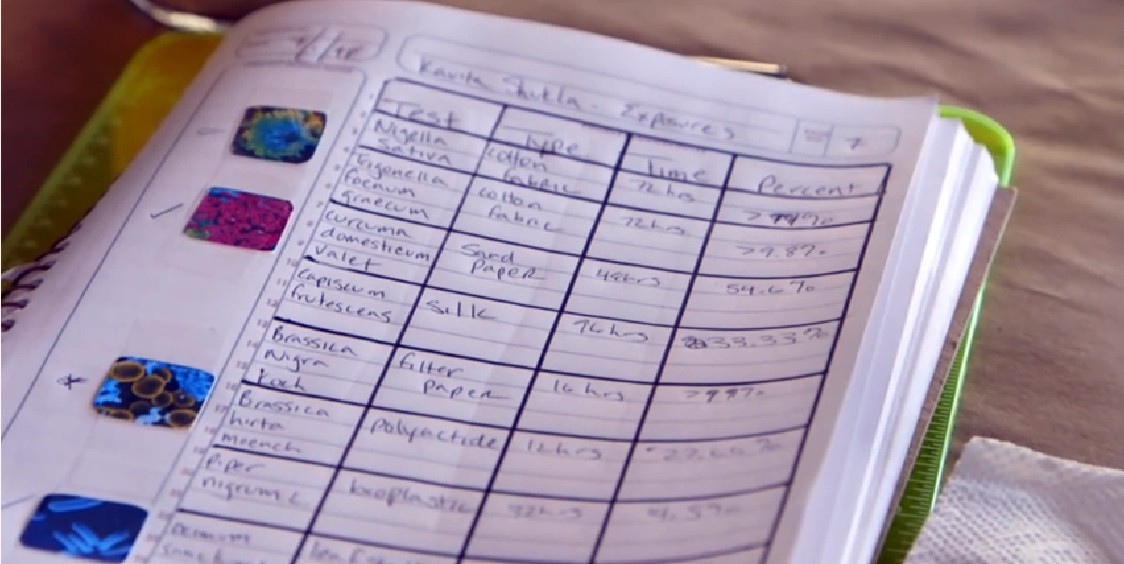 Kavita Shukla - Exposures
7
Test Type Time Percent
Nigella
Sativa
cotton
fabric
72 hrs
>99%
Trigonella
foenum
graecum
cotton
fabric
72 hrs
curcuma
domesticum
Valet
Sand
paper
48hrs
54.6%
capiscum
frutescens
Silk
96 hrs
33.33%
Brassica
Nigra
Koch
filter
paper
16 hrs
>99%
Brassica
hirta
moench
polyactide
12 hrs
Piper
nigrum L
bioplastic
32hrs